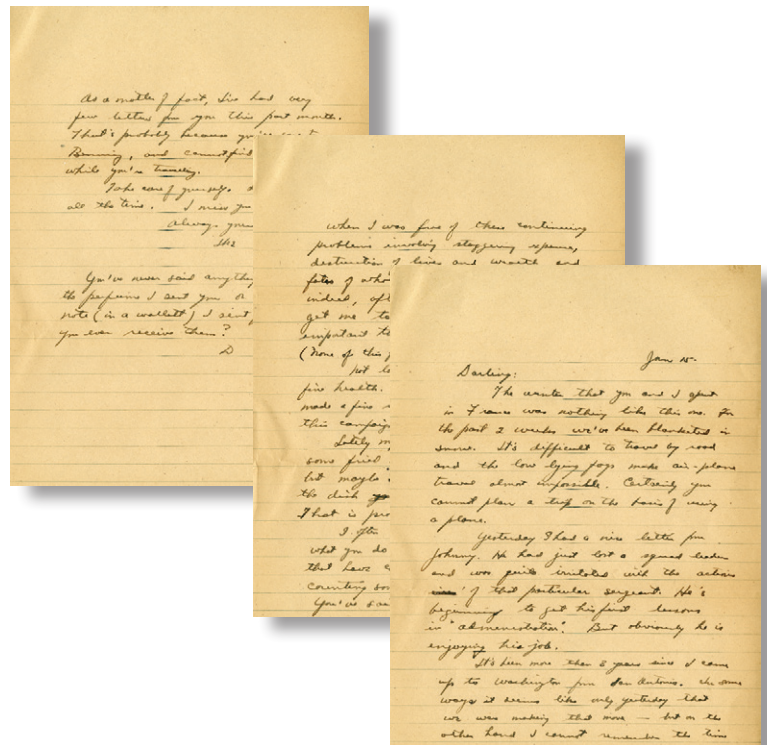 As a matter of fact, I've had very
few letters fm you this past month.
That's probably because you're
Benning, and cannot find
while you're traveling.
Take care of yourself.
all the time. I miss you
Always your
Ike
You've never said anything
the perfume I sent you or
note (in a wallett) I sent
you ever receive them?
D
when I was free of these continuing
problems involving staggering expense,
destruction of lives and wealth and
fates of
indeed, oft
get me to
important to
(None of this
Not
fine health.
made a fine
this campaig
Lately my
some fried
but maybe
the dish
That is pro
I often
what you do
that have
counting
You've
Jan 15.
Darling:
The winter that you and I spent
in France was nothing like this one. For
the past 2 weeks we've been blanketed in
snow. It's difficult to travel by road
and the low lying fogs make air-plane
travel almost impossible. Certainly you
cannot plan a trip on the basis of using
a plane.
Yesterday I had a nice letter fm
Johnny. He had just lost a squad leader
and was quite irritated with the actions
of that particular sergeant. He's
beginning to get his first lessons
in "administration". But obviously he is
enjoying his job.
It's been more than 3 years since I came
up to Washington fm San Antonio. In some
ways it seems like only yesterday that
we was making that move — but on the
other hand I cannot remember the time